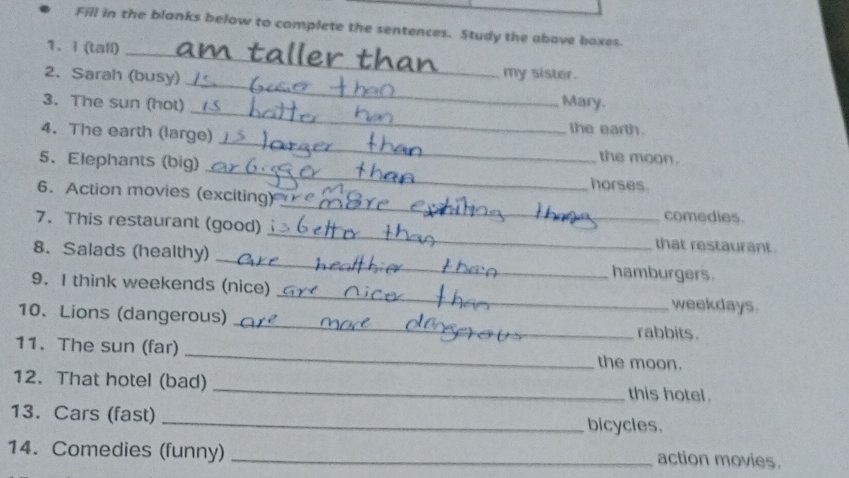 Fill in the blanks below to complete the sentences. Study the above boxes.
1. I (tall) am taller than my sister.
2. Sarah (busy) is than Mary.
3. The sun (hot) is hatter han the earth.
4. The earth (large) is larger than the moon.
5. Elephants (big) ar bigger than horses.
6. Action movies (exciting) are more comedies.
7. This restaurant (good) is better than that restaurant.
8. Salads (healthy) are healthier than hamburgers.
9. I think weekends (nice) are nicer than weekdays.
10. Lions (dangerous) are more dangerous rabbits.
11. The sun (far) the moon.
12. That hotel (bad) this hotel.
13. Cars (fast) bicycles.
14. Comedies (funny) action movies.